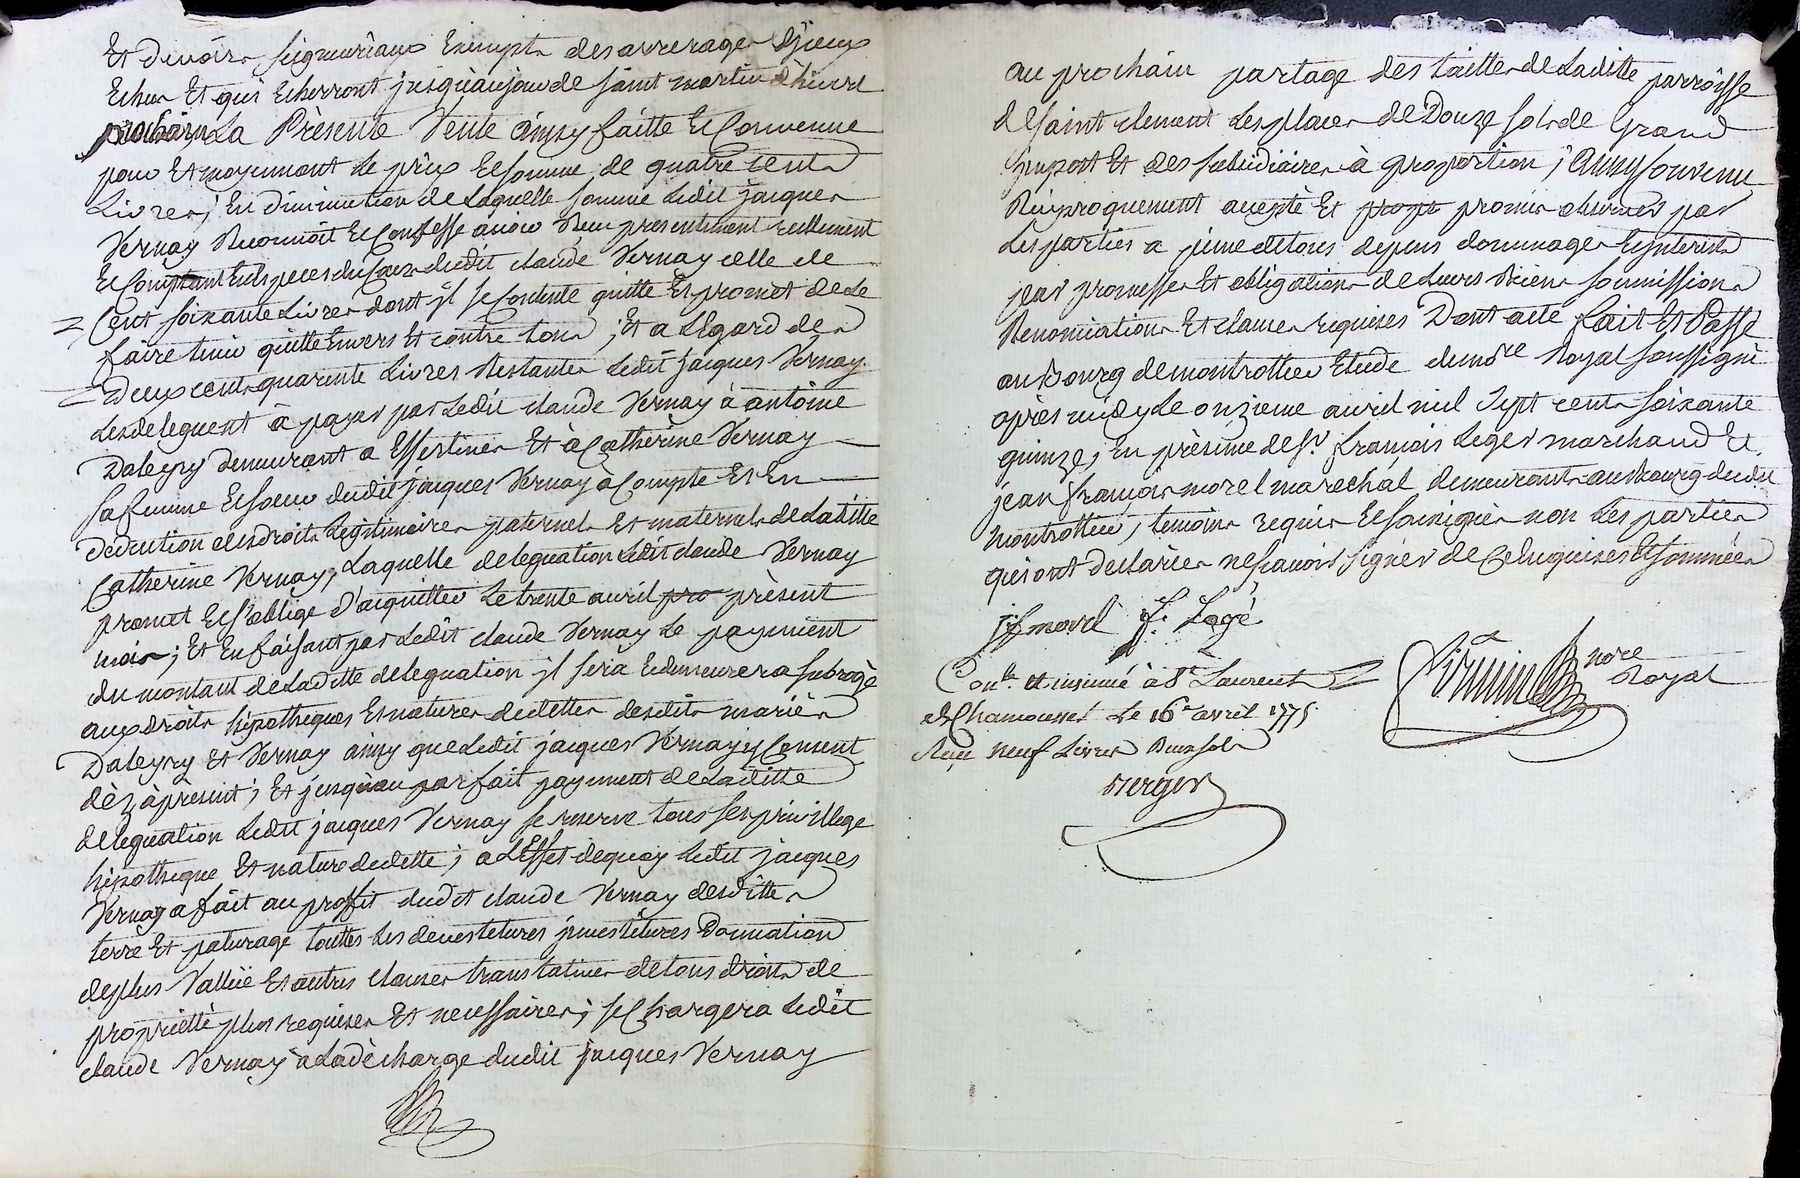 Et devoirs seigneuriaux Exempte des arrerages d'jceux
Echus Et qui Echerront jusqu'aujour de saint martin d'hivert
prochain La Presente Vente ainsy faitte Et Convenue
pour Et moyennant le prix Et somme de quatre cents
Livres; En diminution de Laquelle somme Ledit jacques
Vernay Reconnoit Et Confesse avoir Reçu presentement reellement
Et Comptant En Especes du Cours dudit claude Vernay celle de
Cent soixante Livres dont jl se Contente quitte Et promet de Le
faire tenir quitte Envers Et contre tous; Et a L'Egard des
Deux cents quarente Livres Restantes Ledit jacques Vernay
Les delequent à payer par Ledit claude Vernay à antoine
Dalegry demeurant a Essertines Et à Catherine Vernay
sa femme Et soeur dudit jacques Vernay à Compte Et En
deduction des droits Legitimaires paternels Et maternels de Laditte
Catherine Vernay, Laquelle deleguation Ledit claude Vernay
promet Et s'oblige d'acquitter Le trente avril pro présent
mois; Et En faisant par Ledit claude Vernay Le payement
du montant de Laditte deleguation jl sera Et demeurera subrogé
aux droits hipotheques Et natures de dettes desdits mariés
Dalegry Et Vernay ainsy que Ledit jacques Vernay y Consent
dèz àprésent; Et jusquau parfait payement de Laditte
deleguation Ledit jacques Vernay se reserve tous ses privillege
hipotheque Et nature de dette; a L'Effet dequoy Ledit jacques
Vernay a fait au proffit dudit claude Vernay desdittes
terre Et paturage touttes Les devestetures jnvestitures Donnation
de plus Vallüe Et autres clauses translatives de tous droits de
proprietté plus requises Et necessaires; se Chargera Ledit
claude Vernay à La décharge dudit jacques Vernay
au prochain partage des tailles de Laditte parroisse
de saint clement Les places de Douze sols de Grand
jmpost Et des subsidiaires à proportion; Ainsy Convenu
Reciproquement accepté Et promt promis observer par
Les parties a peine de tous depens dommages Et jnterests
par promesses Et obligations de Leurs Biens soumissions
Renonciations Et clauses requises Dont acte fait Et Passé
au Bourg de montrottier Etude du nore Royal soussigné
après midy Le onzieme avril mil sept cents soixante
quinze, En présence de sr. françois Leger marchand Et
jean françois morel marechal demeurants au Bourg dudit
montrottier, temoins requis Et soussignés non Les parties
qui ont declarées ne sçavoir signer de Ce Enquises Et sommées
jf morel f. Logé
Conlé et insinué à St Laurent
de Chamousset Le 16e avril 1775
Reçu neuf Livres Deux sols
Berger
nore
Royal